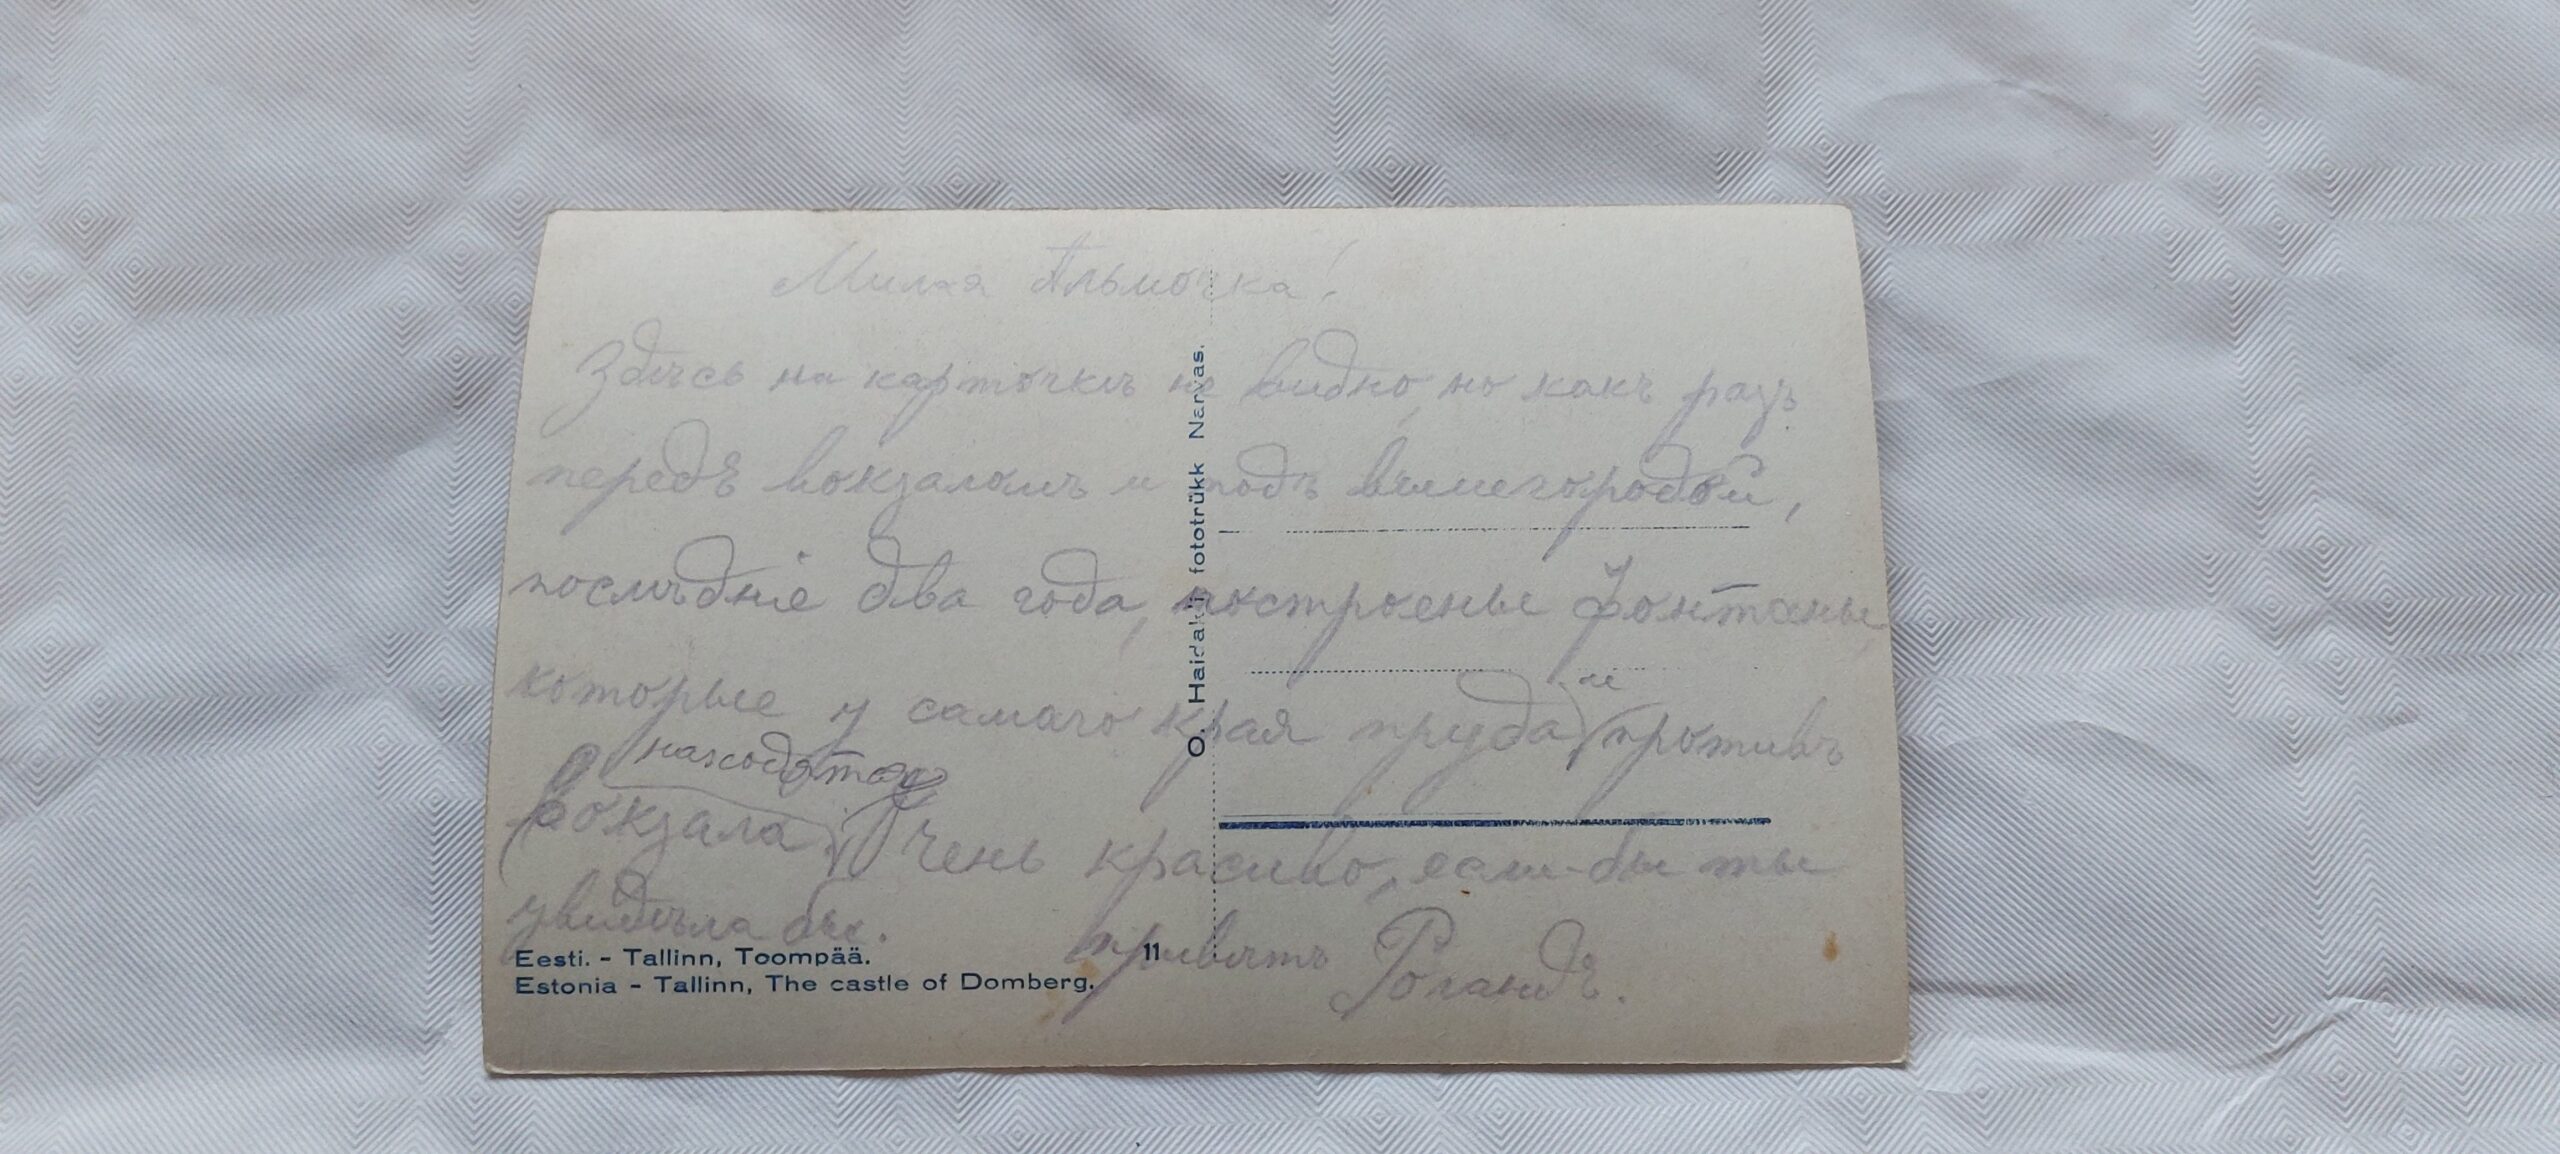 Милая Альмочка!
Здѣсь на карточкѣ не видно, но какъ разъ
передъ вокзаломъ и подъ вышегородой,
послѣдніе два года, построены фонтаны,
которые у самаго края пруда и противъ
вокзала находятся. Очень красиво, если-бы ты
увидѣла бы.
привѣтъ Роландъ.
Eesti. - Tallinn, Toompää.
Estonia - Tallinn, The castle of Domberg.
11
O. Haidak, fototrükk Narvas.